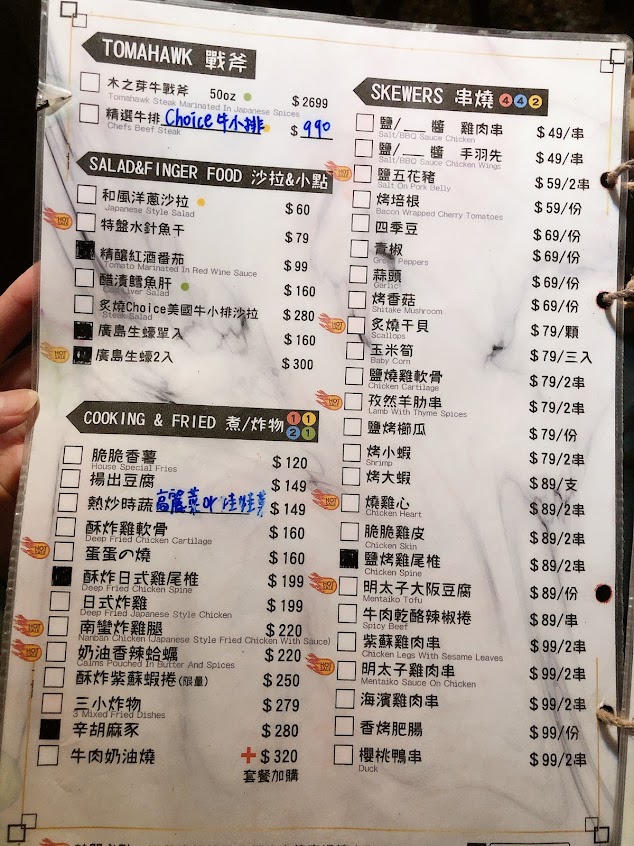 TOMAHAWK 戰斧
木之芽牛戰斧 50oz $2699
Tomahawk Steak Marinated In Japanese Spices
精選牛排 Choice牛小排 $990
Chefs Beef Steak
SALAD&FINGER FOOD 沙拉&小點
和風洋蔥沙拉 $60
Japanese Style Salad
特盤水針魚干 $79
精釀紅酒番茄 $99
Tomato Marinated In Red Wine Sauce
醋漬鱈魚肝 $160
Liver Salad
炙燒Choice美國牛小排沙拉 $280
Steak Salad
廣島生蠔單入 $160
廣島生蠔2入 $300
COOKING & FRIED 煮/炸物 1 1 2 1
脆脆香薯 $120
House Special Fries
揚出豆腐 $149
熱炒時蔬 高麗菜or娃娃菜 $149
酥炸雞軟骨 $160
Deep Fried Chicken Cartilage
蛋蛋の燒 $160
酥炸日式雞尾椎 $199
Deep Fried Chicken Spine
日式炸雞 $199
Deep Fried Japanese Style Chicken
南蠻炸雞腿 $220
Nanban Chicken (Japanese Style Fried Chicken With Sauce)
奶油香辣蛤蠣 $220
Calms Pouched In Butter And Spices
酥炸紫蘇蝦捲(限量) $250
三小炸物 $279
3 Mixed Fried Dishes
辛胡麻豕 $280
牛肉奶油燒 +$320
套餐加購
SKEWERS 串燒 4 4 2
鹽/ 醬 雞肉串 $49/串
Salt/BBQ Sauce Chicken
鹽/ 醬 手羽先 $49/串
Salt/BBQ Sauce Chicken Wings
鹽五花豬 $59/2串
Salt On Pork Belly
烤培根 $59/份
Bacon Wrapped Cherry Tomatoes
四季豆 $69/份
青椒 $69/份
Green Peppers
蒜頭 $69/份
Garlic
烤香菇 $69/份
Shitake Mushroom
炙燒干貝 $79/顆
Scallops
玉米筍 $79/三入
Baby Corn
鹽燒雞軟骨 $79/2串
Chicken Cartilage
孜然羊肋串 $79/2串
Lamb With Thyme Spices
鹽烤櫛瓜 $79/份
烤小蝦 $79/2串
Shrimp
烤大蝦 $89/支
燒雞心 $89/2串
Chicken Heart
脆脆雞皮 $89/2串
Chicken Skin
鹽烤雞尾椎 $89/2串
Chicken Spine
明太子大阪豆腐 $89/份
Mentaiko Tofu
牛肉乾酪辣椒捲 $89/串
Spicy Beef
紫蘇雞肉串 $99/2串
Chicken Legs With Sesame Leaves
明太子雞肉串 $99/2串
Mentaiko Sauce On Chicken
海濱雞肉串 $99/2串
香烤肥腸 $99/份
櫻桃鴨串 $99/2串
Duck